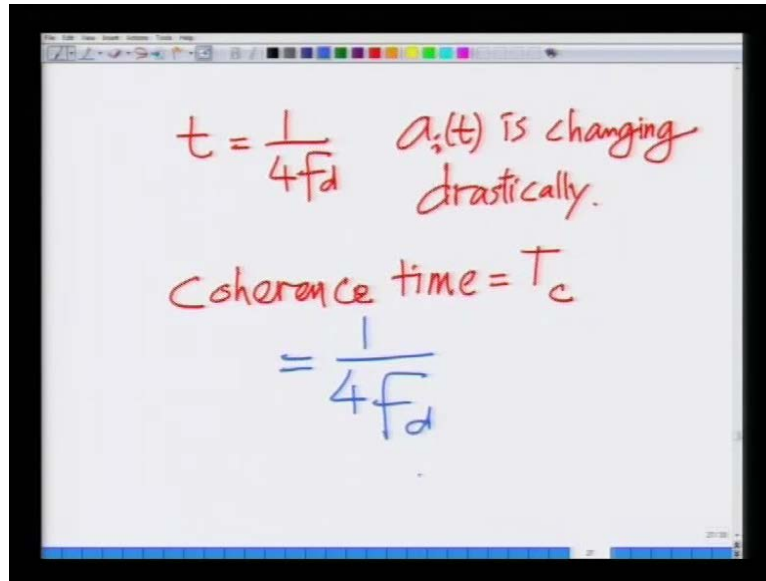 File Edit View Insert Actions Tools Help
t = 1/4f_d a_i(t) is changing
drastically.
Coherence time = T_c
= 1/4f_d